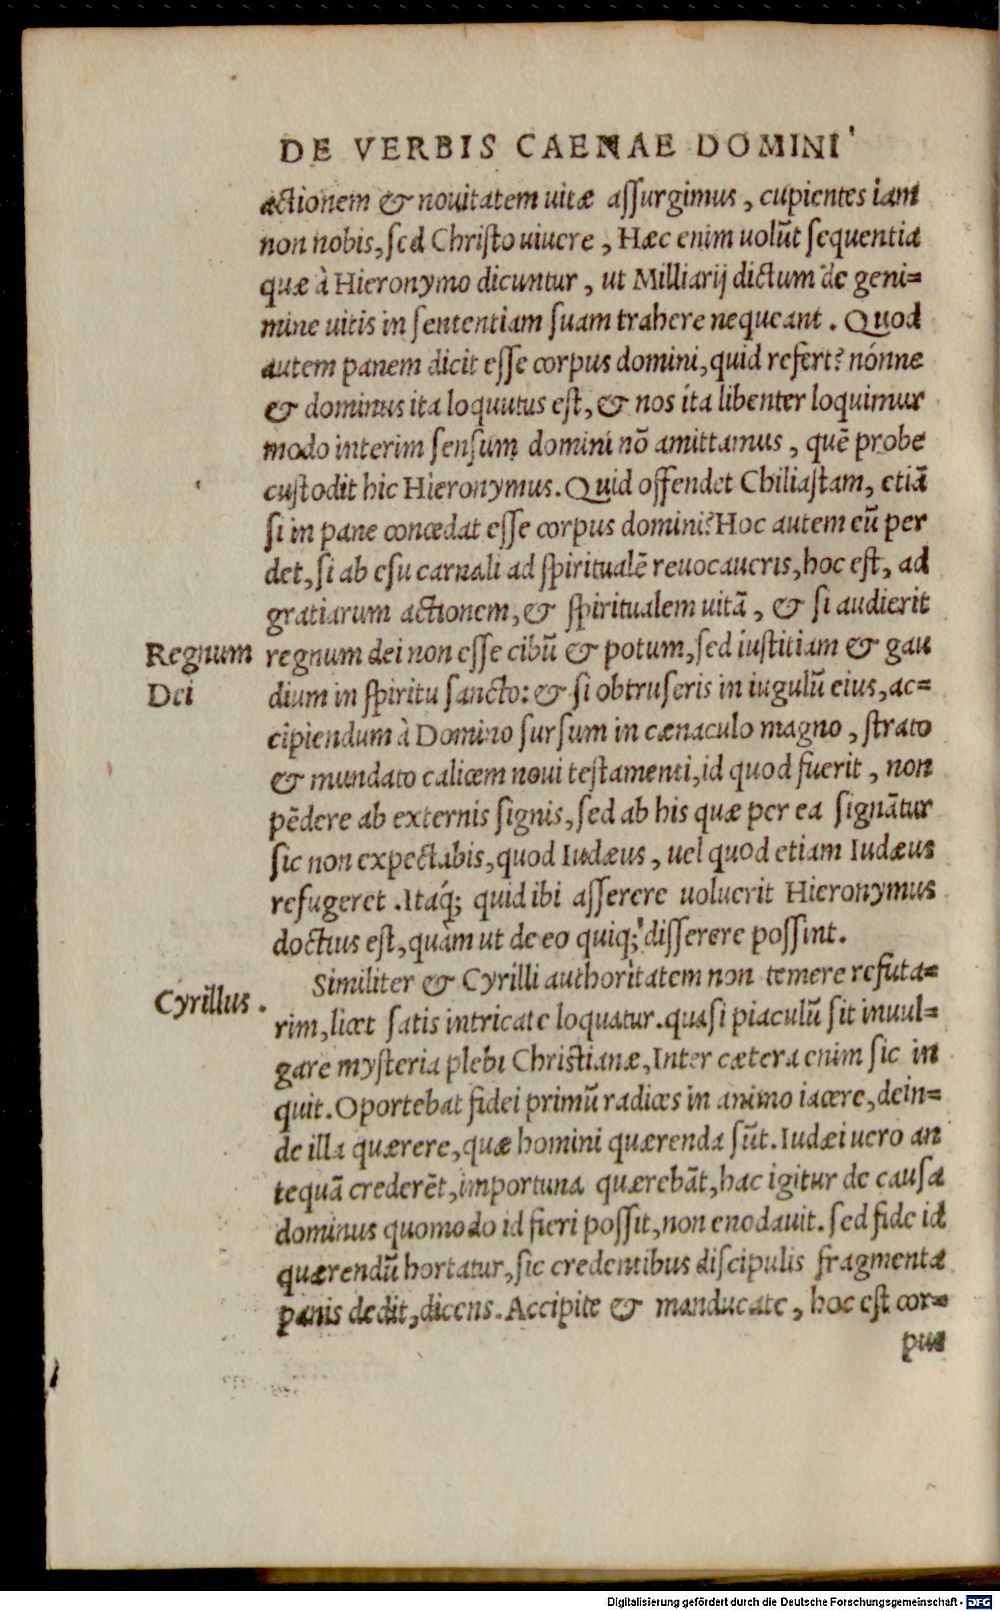 DE VERBIS CAENAE DOMINI
actionem & nouitatem uitæ assurgimus, cupientes iam
non nobis, sed Christo uiuere, Hæc enim uolūt sequentia
quæ à Hieronymo dicuntur, ut Milliarij dictum de geni=
mine uitis in sententiam suam trahere nequeant. Quod
autem panem dicit esse corpus domini, quid refert? nónne
& dominus ita loquutus est, & nos ita libenter loquimur
modo interim sensum domini nō amittamus, quē probe
custodit hic Hieronymus. Quid offendet Chiliastam, etiā
si in pane concedat esse corpus domini? Hoc autem eū per
det, si ab esu carnali ad spiritualē reuocaueris, hoc est, ad
gratiarum actionem, & spiritualem uitā, & si audierit
Regnum Dei
regnum dei non esse cibū & potum, sed iustitiam & gau
dium in spiritu sancto: & si obtruseris in iugulū eius, ac=
cipiendum à Domino sursum in cænaculo magno, strato
& mundato calicem noui testamenti, id quod fuerit, non
pēdere ab externis signis, sed ab his quæ per ea signātur
sic non expectabis, quod Iudæus, uel quod etiam Iudæus
refugeret. Itaq́; quid ibi asserere uoluerit Hieronymus
doctius est, quàm ut de eo quiq; disserere possint.
Similiter & Cyrilli authoritatem non temere refuta=
Cyrillus.
rim, licet satis intricate loquatur. quasi piaculū sit inuul=
gare mysteria plebi Christianæ, Inter cætera enim sic in
quit. Oportebat fidei primū radices in animo iacere, dein=
de illa quærere, quæ homini quærenda sūt. Iudæi uero an
tequā crederēt, importuna quærebāt, hac igitur de causa
dominus quomodo id fieri possit, non enodauit. sed fide id
quærendū hortatur, sic credentibus discipulis fragmenta
panis dedit, dicens. Accipite & manducate, hoc est cor=
pus
Digitalisierung gefördert durch die Deutsche Forschungsgemeinschaft - DFG